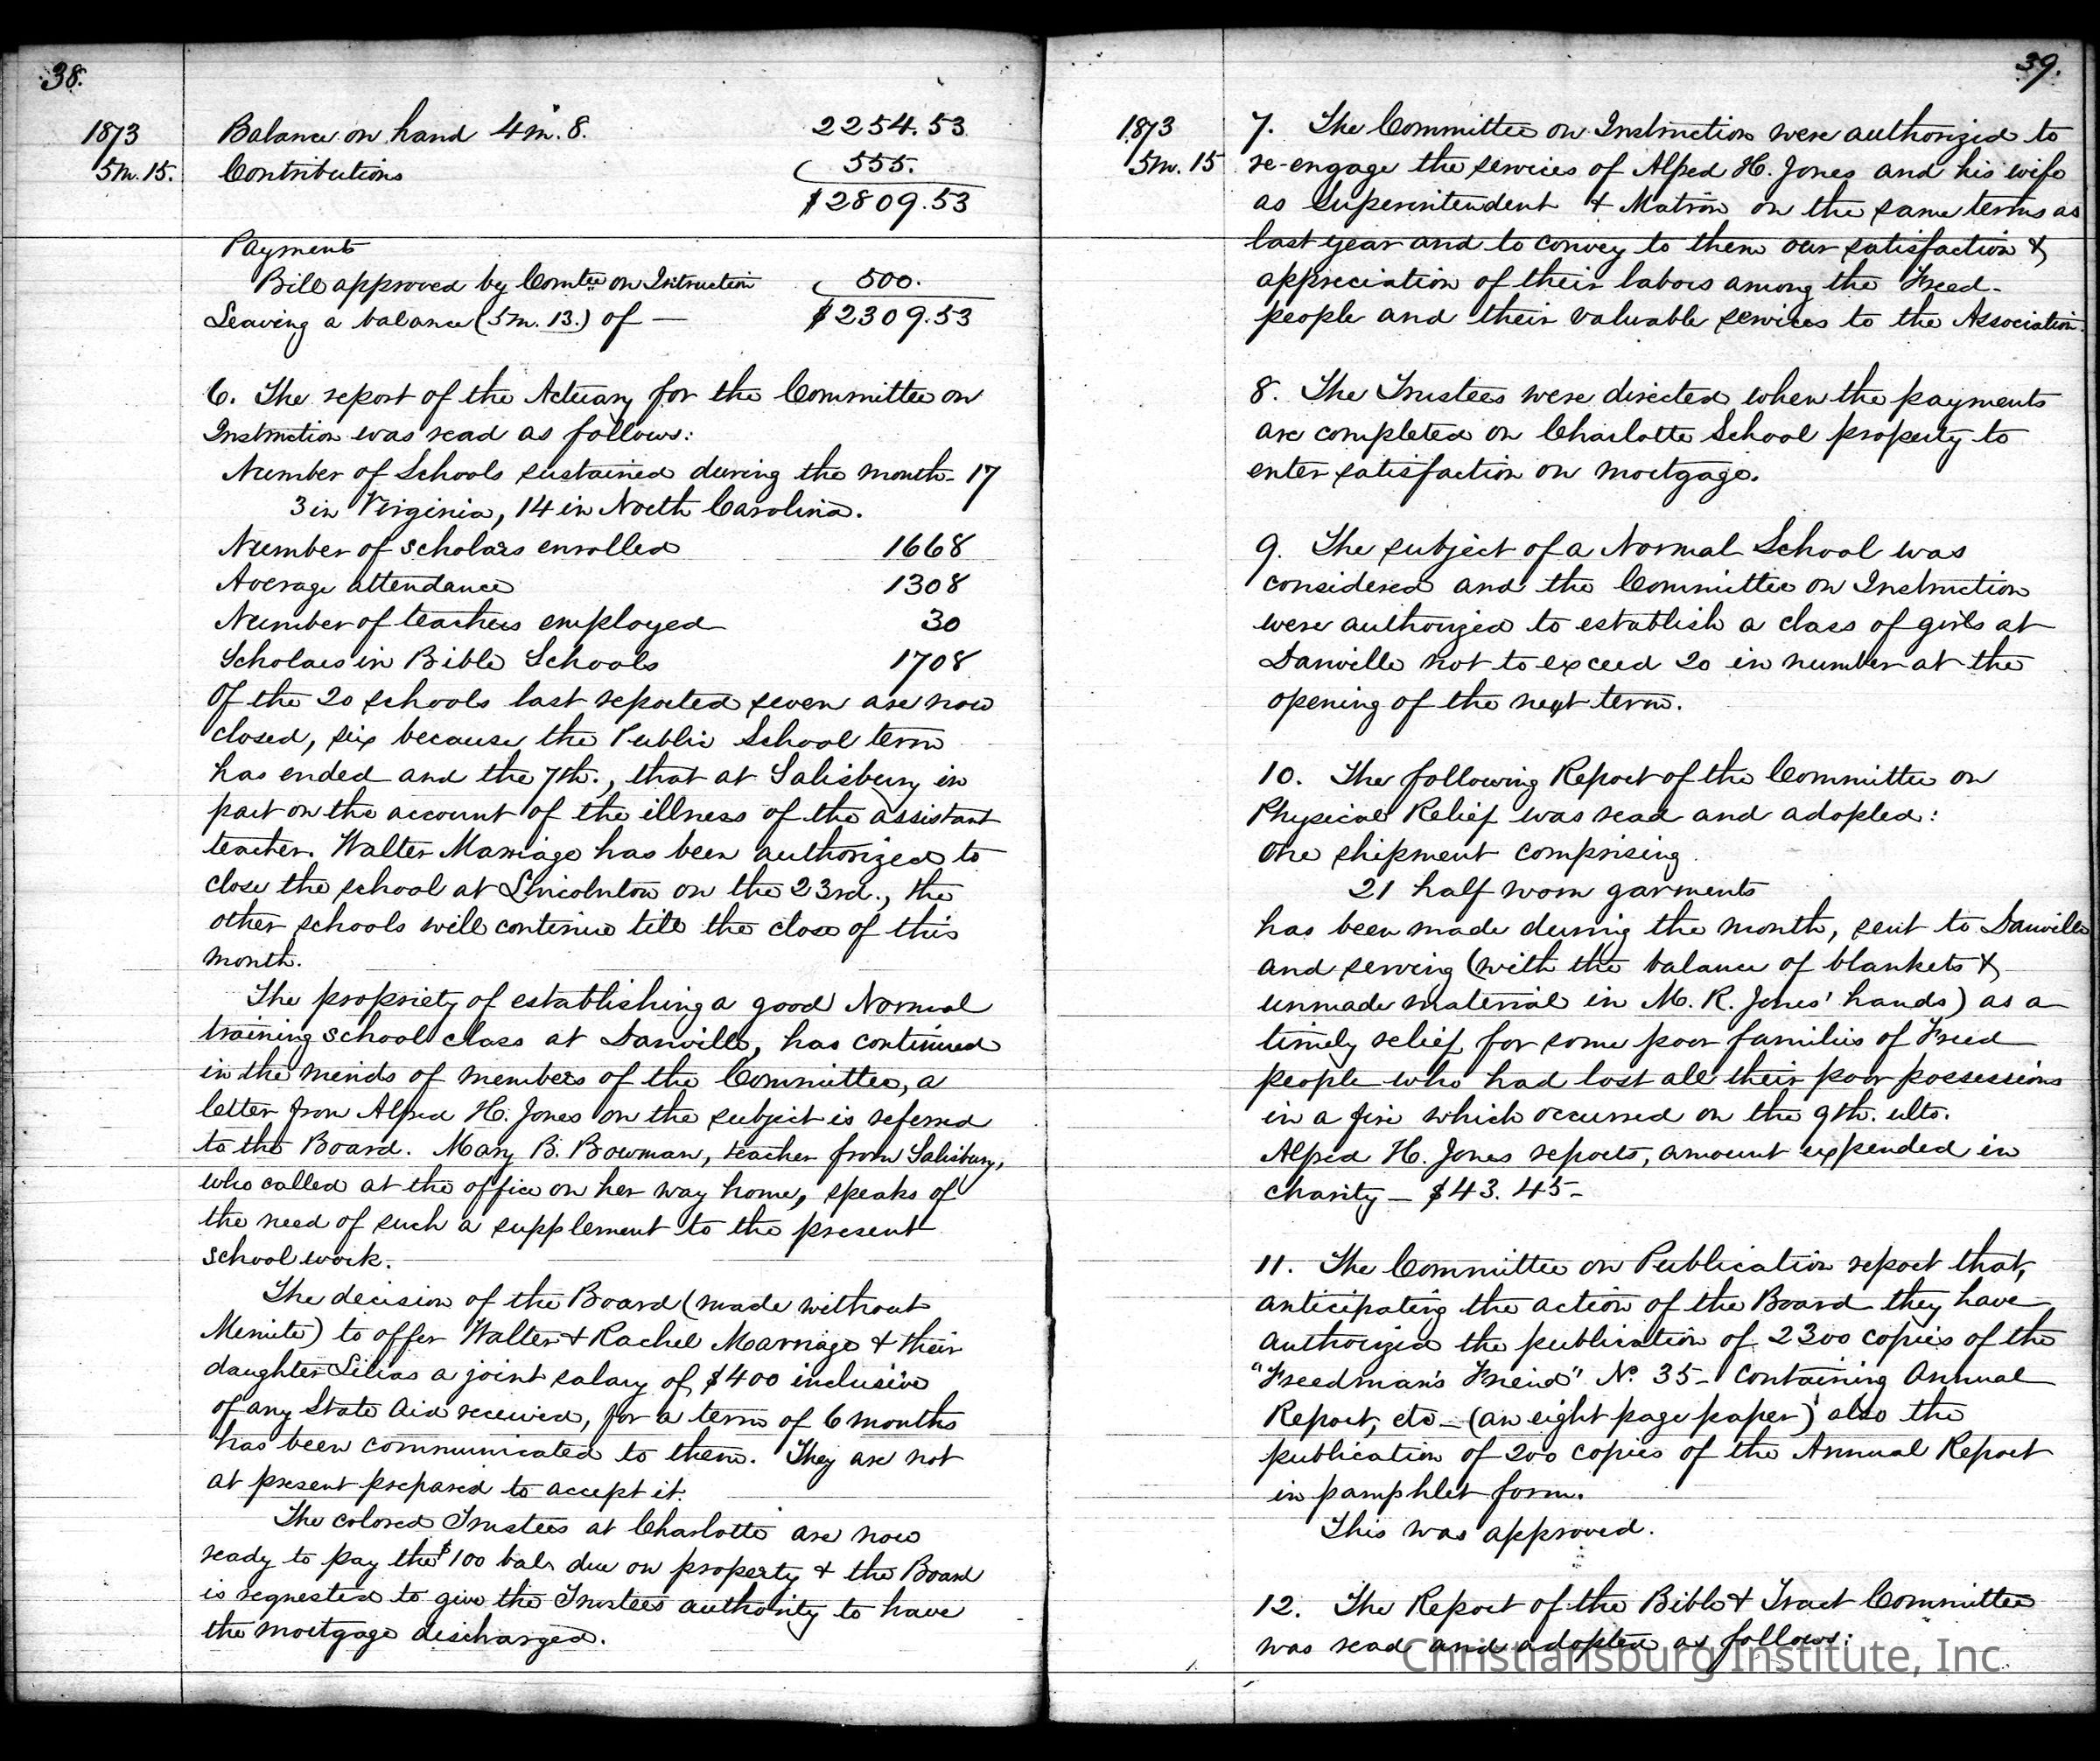 38.
1873
5m. 15.
Balance on hand 4m. 8. 2254.53
Contributions 555.
$2809.53
Payments
Bills approved by Comtee on Instruction 500.
Leaving a balance (5m. 13.) of — $2309.53
6. The report of the Actuary for the Committee on
Instruction was read as follows:
Number of Schools sustained during the month - 17
3 in Virginia, 14 in North Carolina.
Number of scholars enrolled 1668
Average attendance 1308
Number of teachers employed 30
Scholars in Bible Schools 1708
Of the 20 schools last reported seven are now
closed, six because the Public School term
has ended and the 7th., that at Salisbury in
part on the account of the illness of the assistant
teacher. Walter Marriage has been authorized to
close the school at Lincolnton on the 23rd., the
other schools will continue till the close of this
month.
The propriety of establishing a good Normal
training school class at Danville, has continued
in the minds of members of the Committee, a
letter from Alfred H. Jones on the subject is referred
to the Board. Mary B. Bowman, teacher from Salisbury,
who called at the office on her way home, speaks of
the need of such a supplement to the present
school work.
The decision of the Board (made without
Minute) to offer Walter & Rachel Marriage & their
daughter Lilias a joint salary of $400 inclusive
of any State Aid received, for a term of 6 months
has been communicated to them. They are not
at present prepared to accept it.
The colored Trustees at Charlotte are now
ready to pay the $100 bal. due on property & the Board
is requested to give the Trustees authority to have
the mortgage discharged.
39.
1873
5m. 15
7. The Committee on Instruction were authorized to
re-engage the services of Alfred H. Jones and his wife
as Superintendent & Matron on the same terms as
last year and to convey to them our satisfaction &
appreciation of their labors among the Freed-
people and their valuable services to the Association.
8. The Trustees were directed when the payments
are completed on Charlotte School property to
enter satisfaction on mortgage.
9. The subject of a Normal School was
considered and the Committee on Instruction
were authorized to establish a class of girls at
Danville not to exceed 20 in number at the
opening of the next term.
10. The following Report of the Committee on
Physical Relief was read and adopted:
One shipment comprising
21 half worn garments
has been made during the month, sent to Danville
and serving (with the balance of blankets &
unmade material in M. R. Jones' hands) as a
timely relief for some poor families of Freed
people who had lost all their poor possessions
in a fire which occurred on the 9th. ulto.
Alfred H. Jones reports, amount expended in
charity — $43.45-
11. The Committee on Publication report that,
anticipating the action of the Board they have
authorized the publication of 2300 copies of the
"Freedman's Friend" No. 35 - containing Annual
Report, etc — (an eight page paper) also the
publication of 200 copies of the Annual Report
in pamphlet form.
This was approved.
12. The Report of the Bible & Tract Committee
was read and adopted as follows:
Christiansburg Institute, Inc